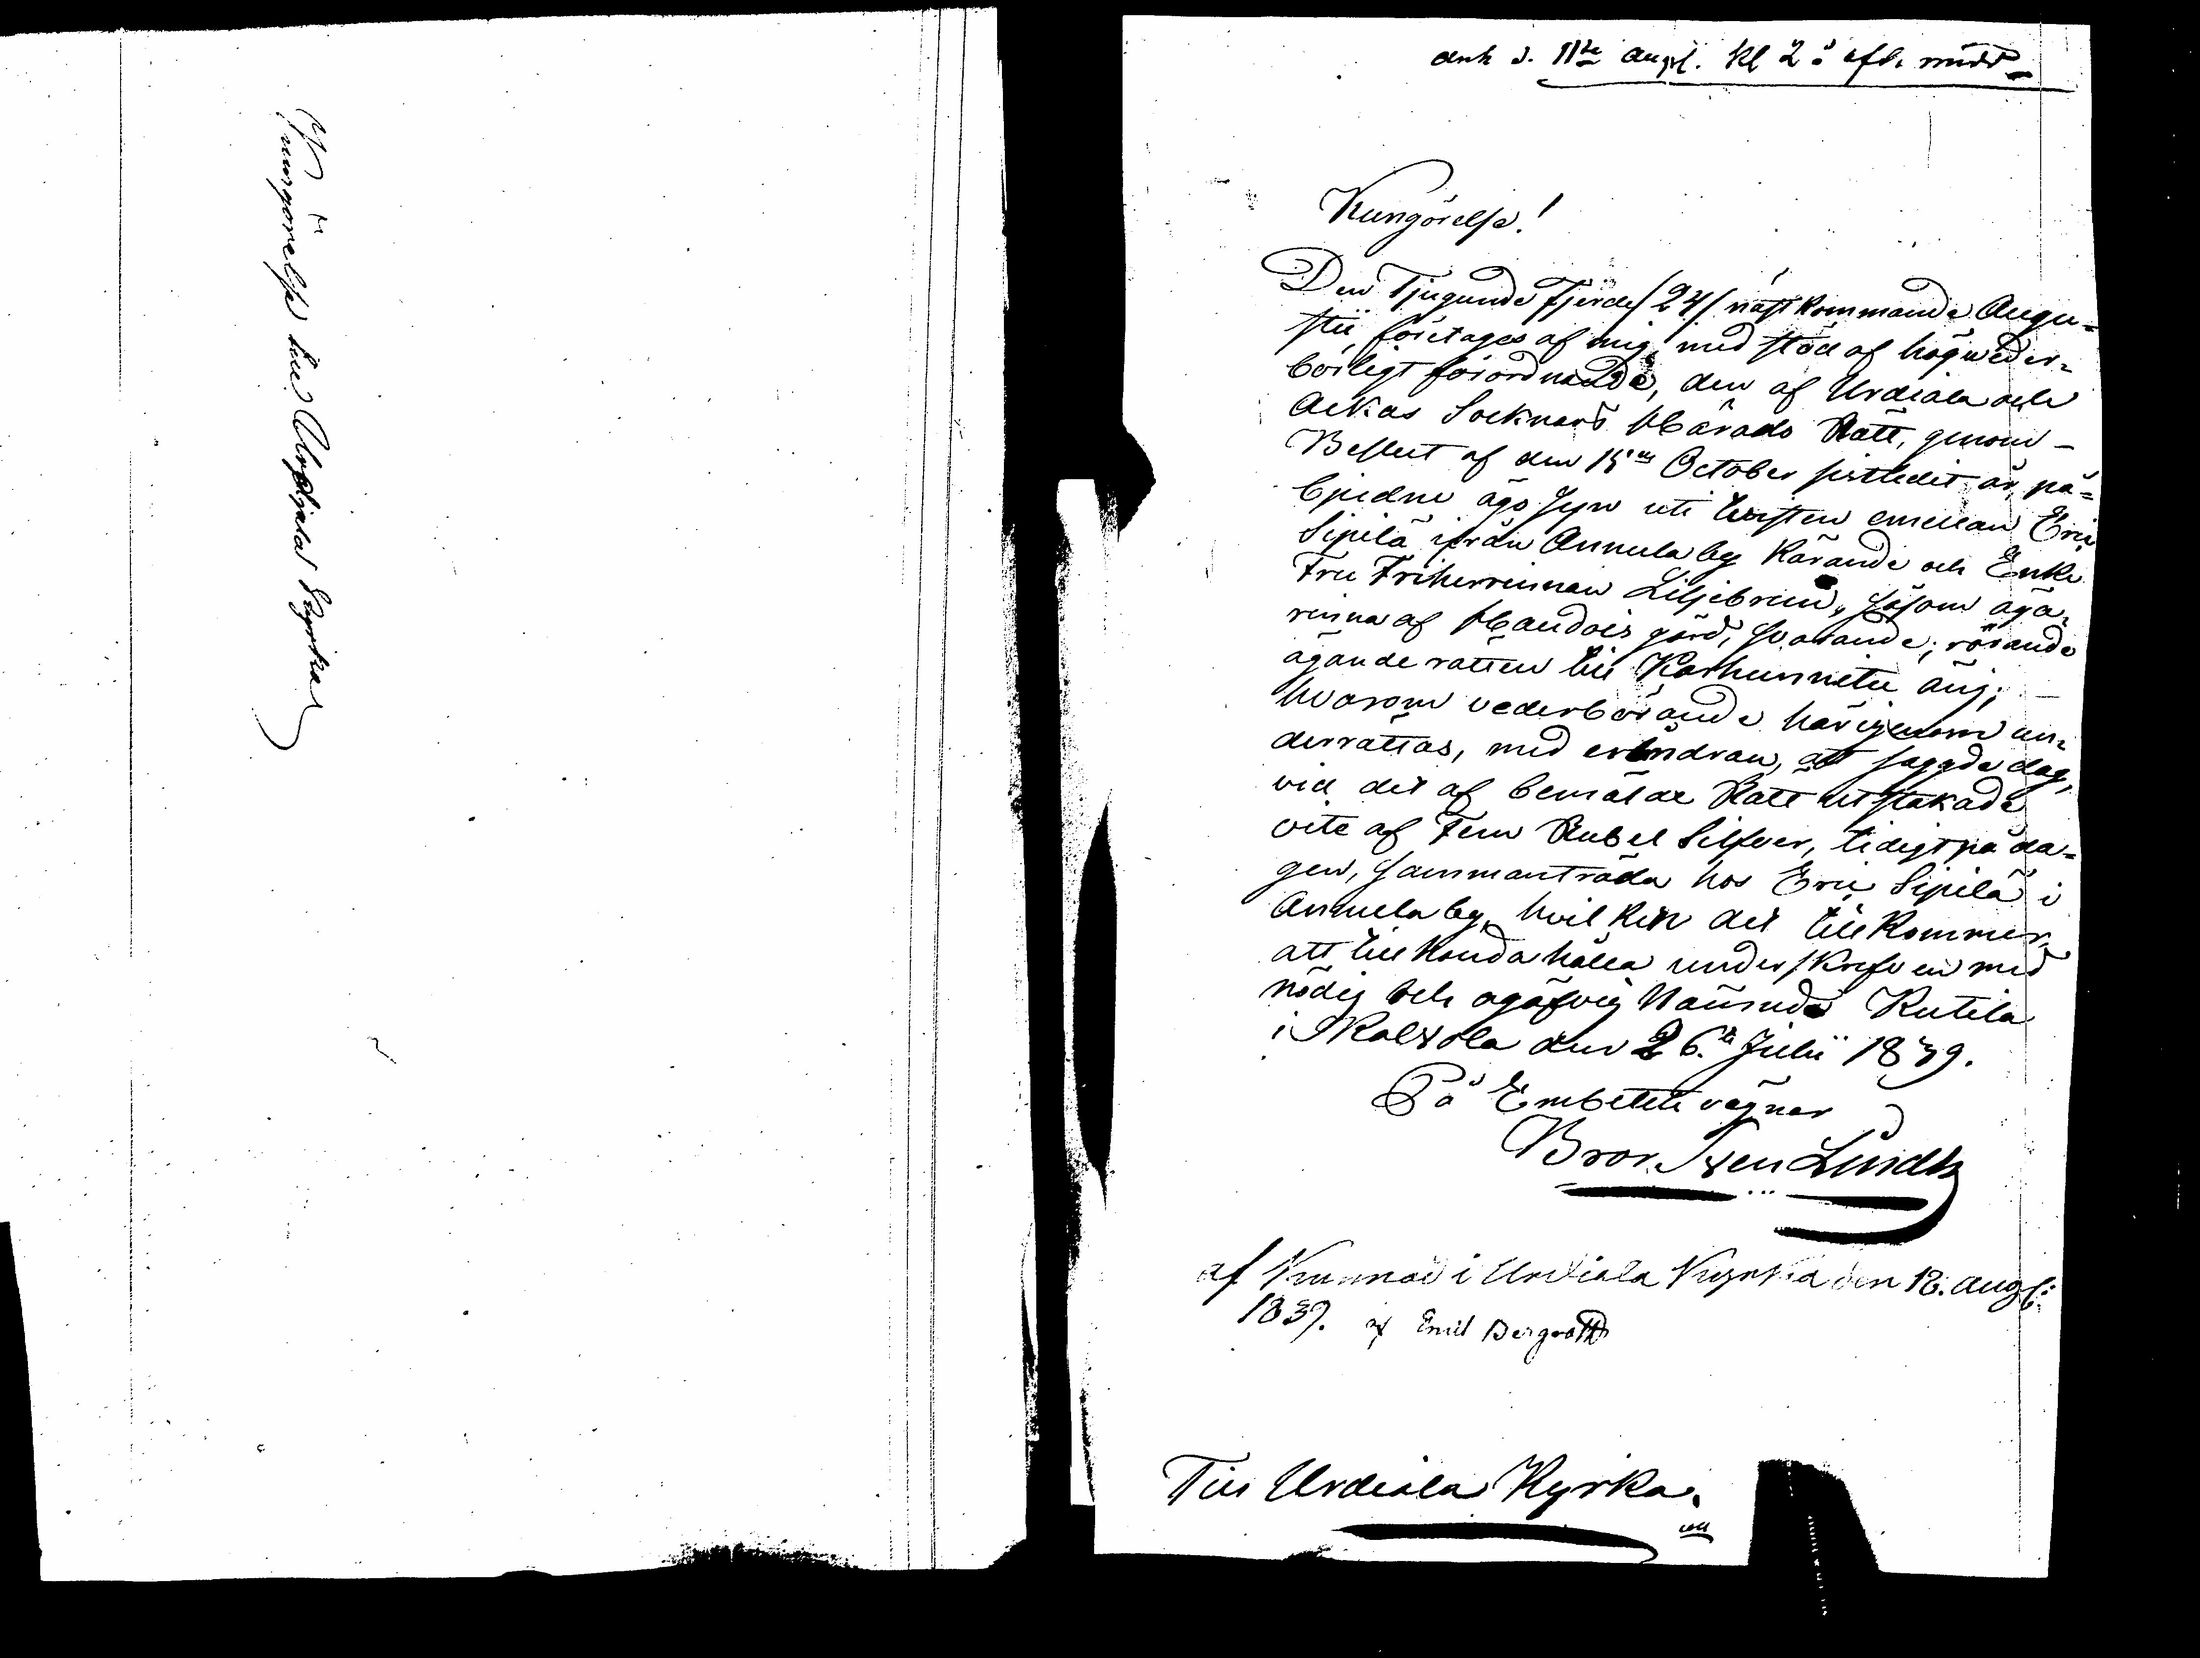 Kungörelse till Urdiala Kyrka
ank d. 11te Aug. Kl 2 eft. midd
Kungörelse!
Den Tjugunde Fjerde /24/ nästkommande Augu-
stii, företages af mig, med stöd af högveder-
börligt förordnande, den af Urdiala och
Ackas Socknars Härads Rätt, genom
Beslut af den 15de October sistledit år, på-
bjudne ägo Syn uti tvisten emellan Eric
Sipilä ifrån Annula by Kärande och Enke
Fru Friherrinnan Liljebrun, såsom äga-
rinna af Handois gård, svarande; rörande
äganderätten till Karhunnitu äng;
hvarom vederbörande härigenom un-
derrättas, med erindran, att sagde dag,
vid det af bemälde Rätt utstakade
vite af Fem Rubel Silfver, tidigt på da-
gen, sammanträda hos Eric Sipilä i
Annula by, hvilken det tillkommer
att tillhandahålla underskrefven med
nödig och ojäfvig Nämnd. Kutila
i Kalvola den 26te Julii 1839.
På Embetets vägnar
Bror Sven Lindh
af Kunnad i Urdiala Kyrka den 18. Aug.
1839. af Emil Bergroth
Till Urdiala Kyrka.